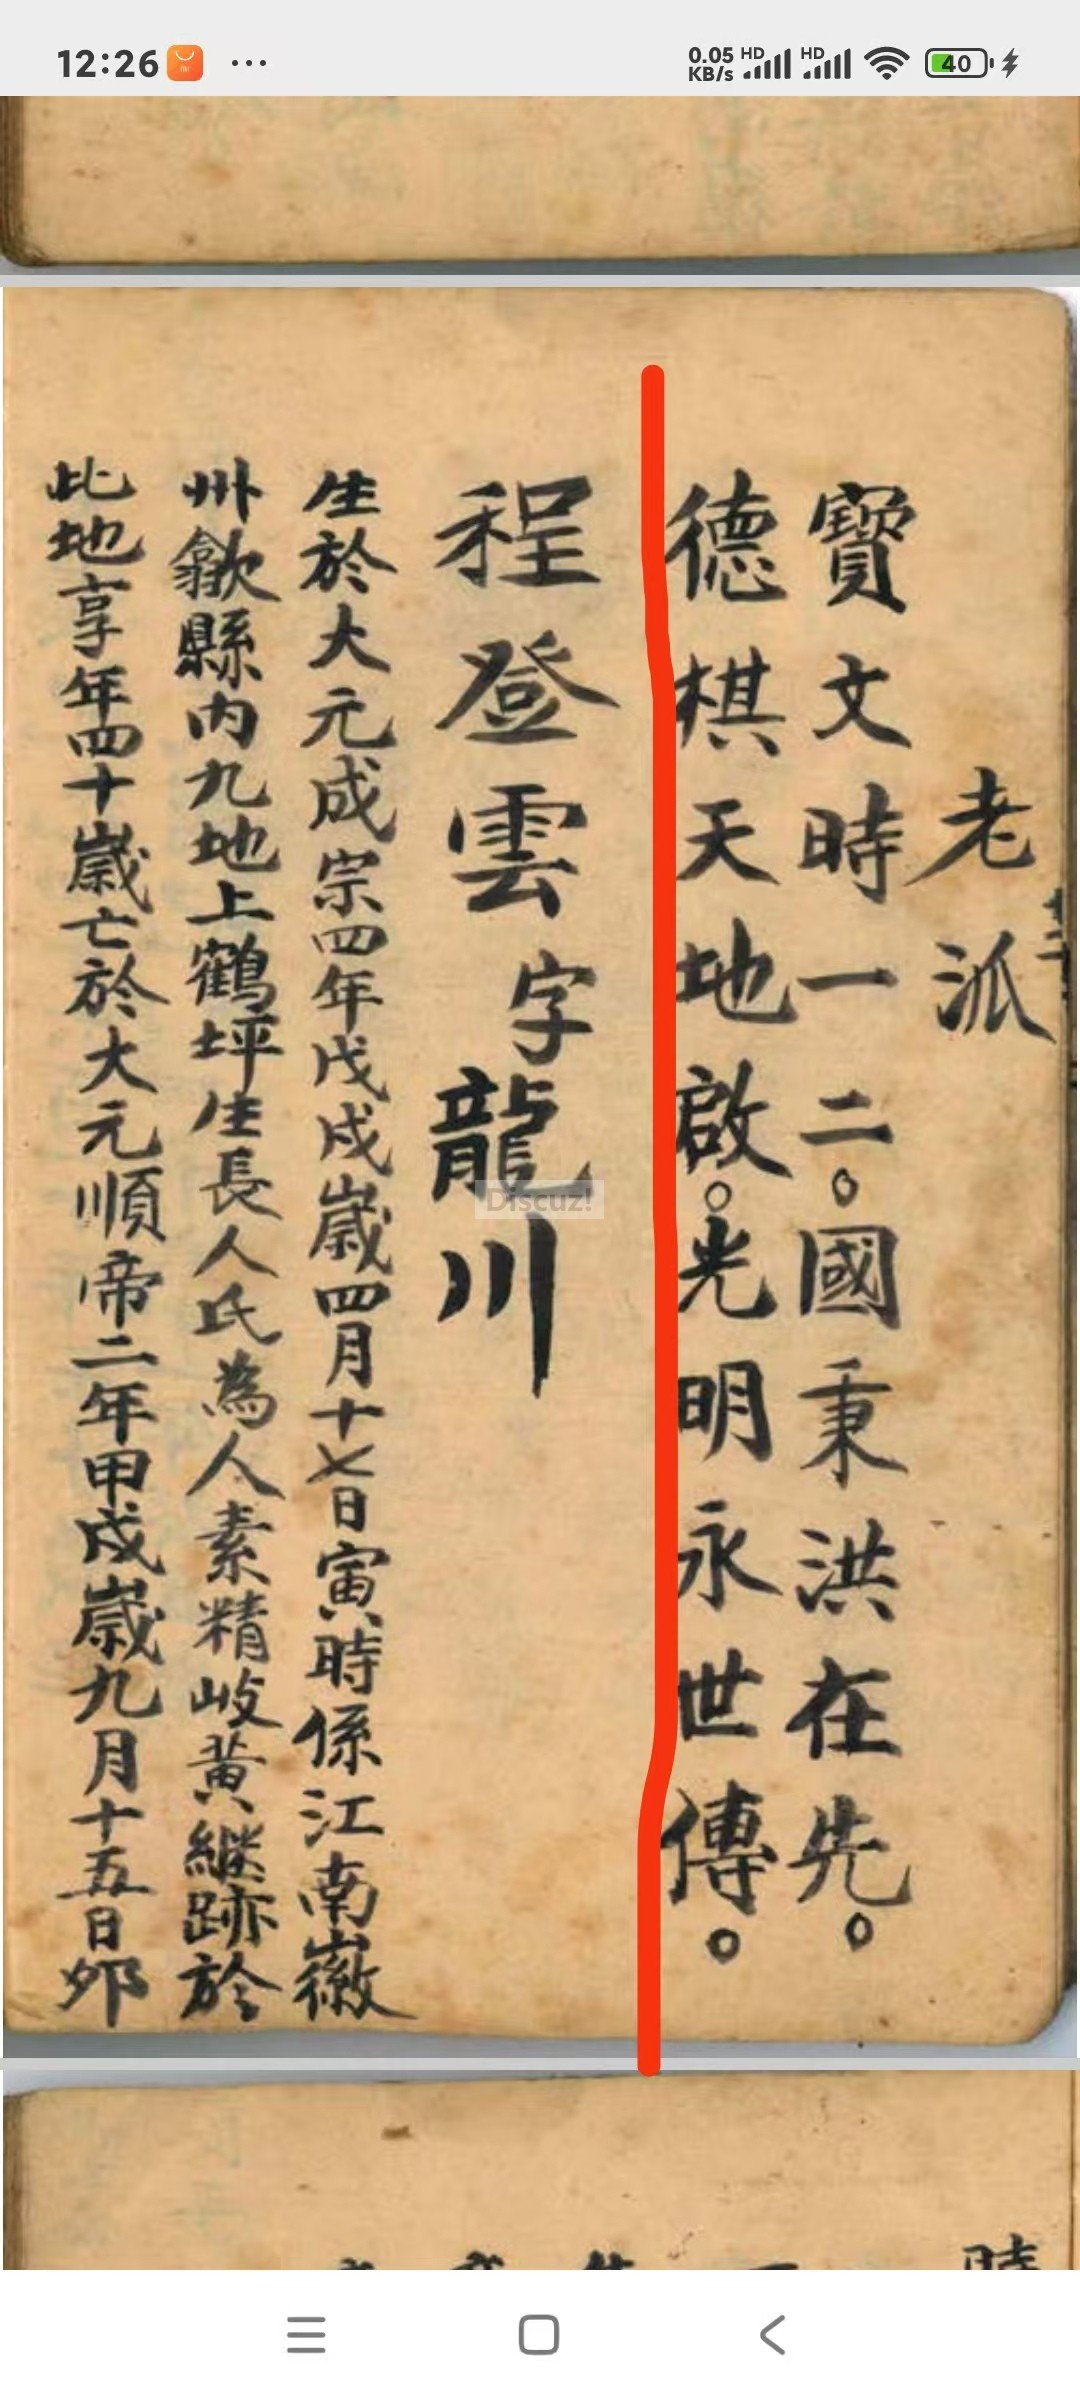 12:26
0.05 KB/s HD HD 40
老派
寶文時一二。國秉洪在先。
德棋天地啟。光明永世傳。
程登雲字龍川
生於大元成宗四年戊戌歲四月十七日寅時係江南徽
州歙縣內九地上鶴坪生長人氏為人素精岐黃繼跡於
此地享年四十歲亡於大元順帝二年甲戌歲九月十五日卯
Discuz!
時